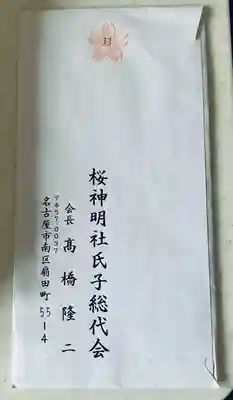 桜神明社氏子総代会
会長 高橋隆二
〒457-0037
名古屋市南区扇田町55-4